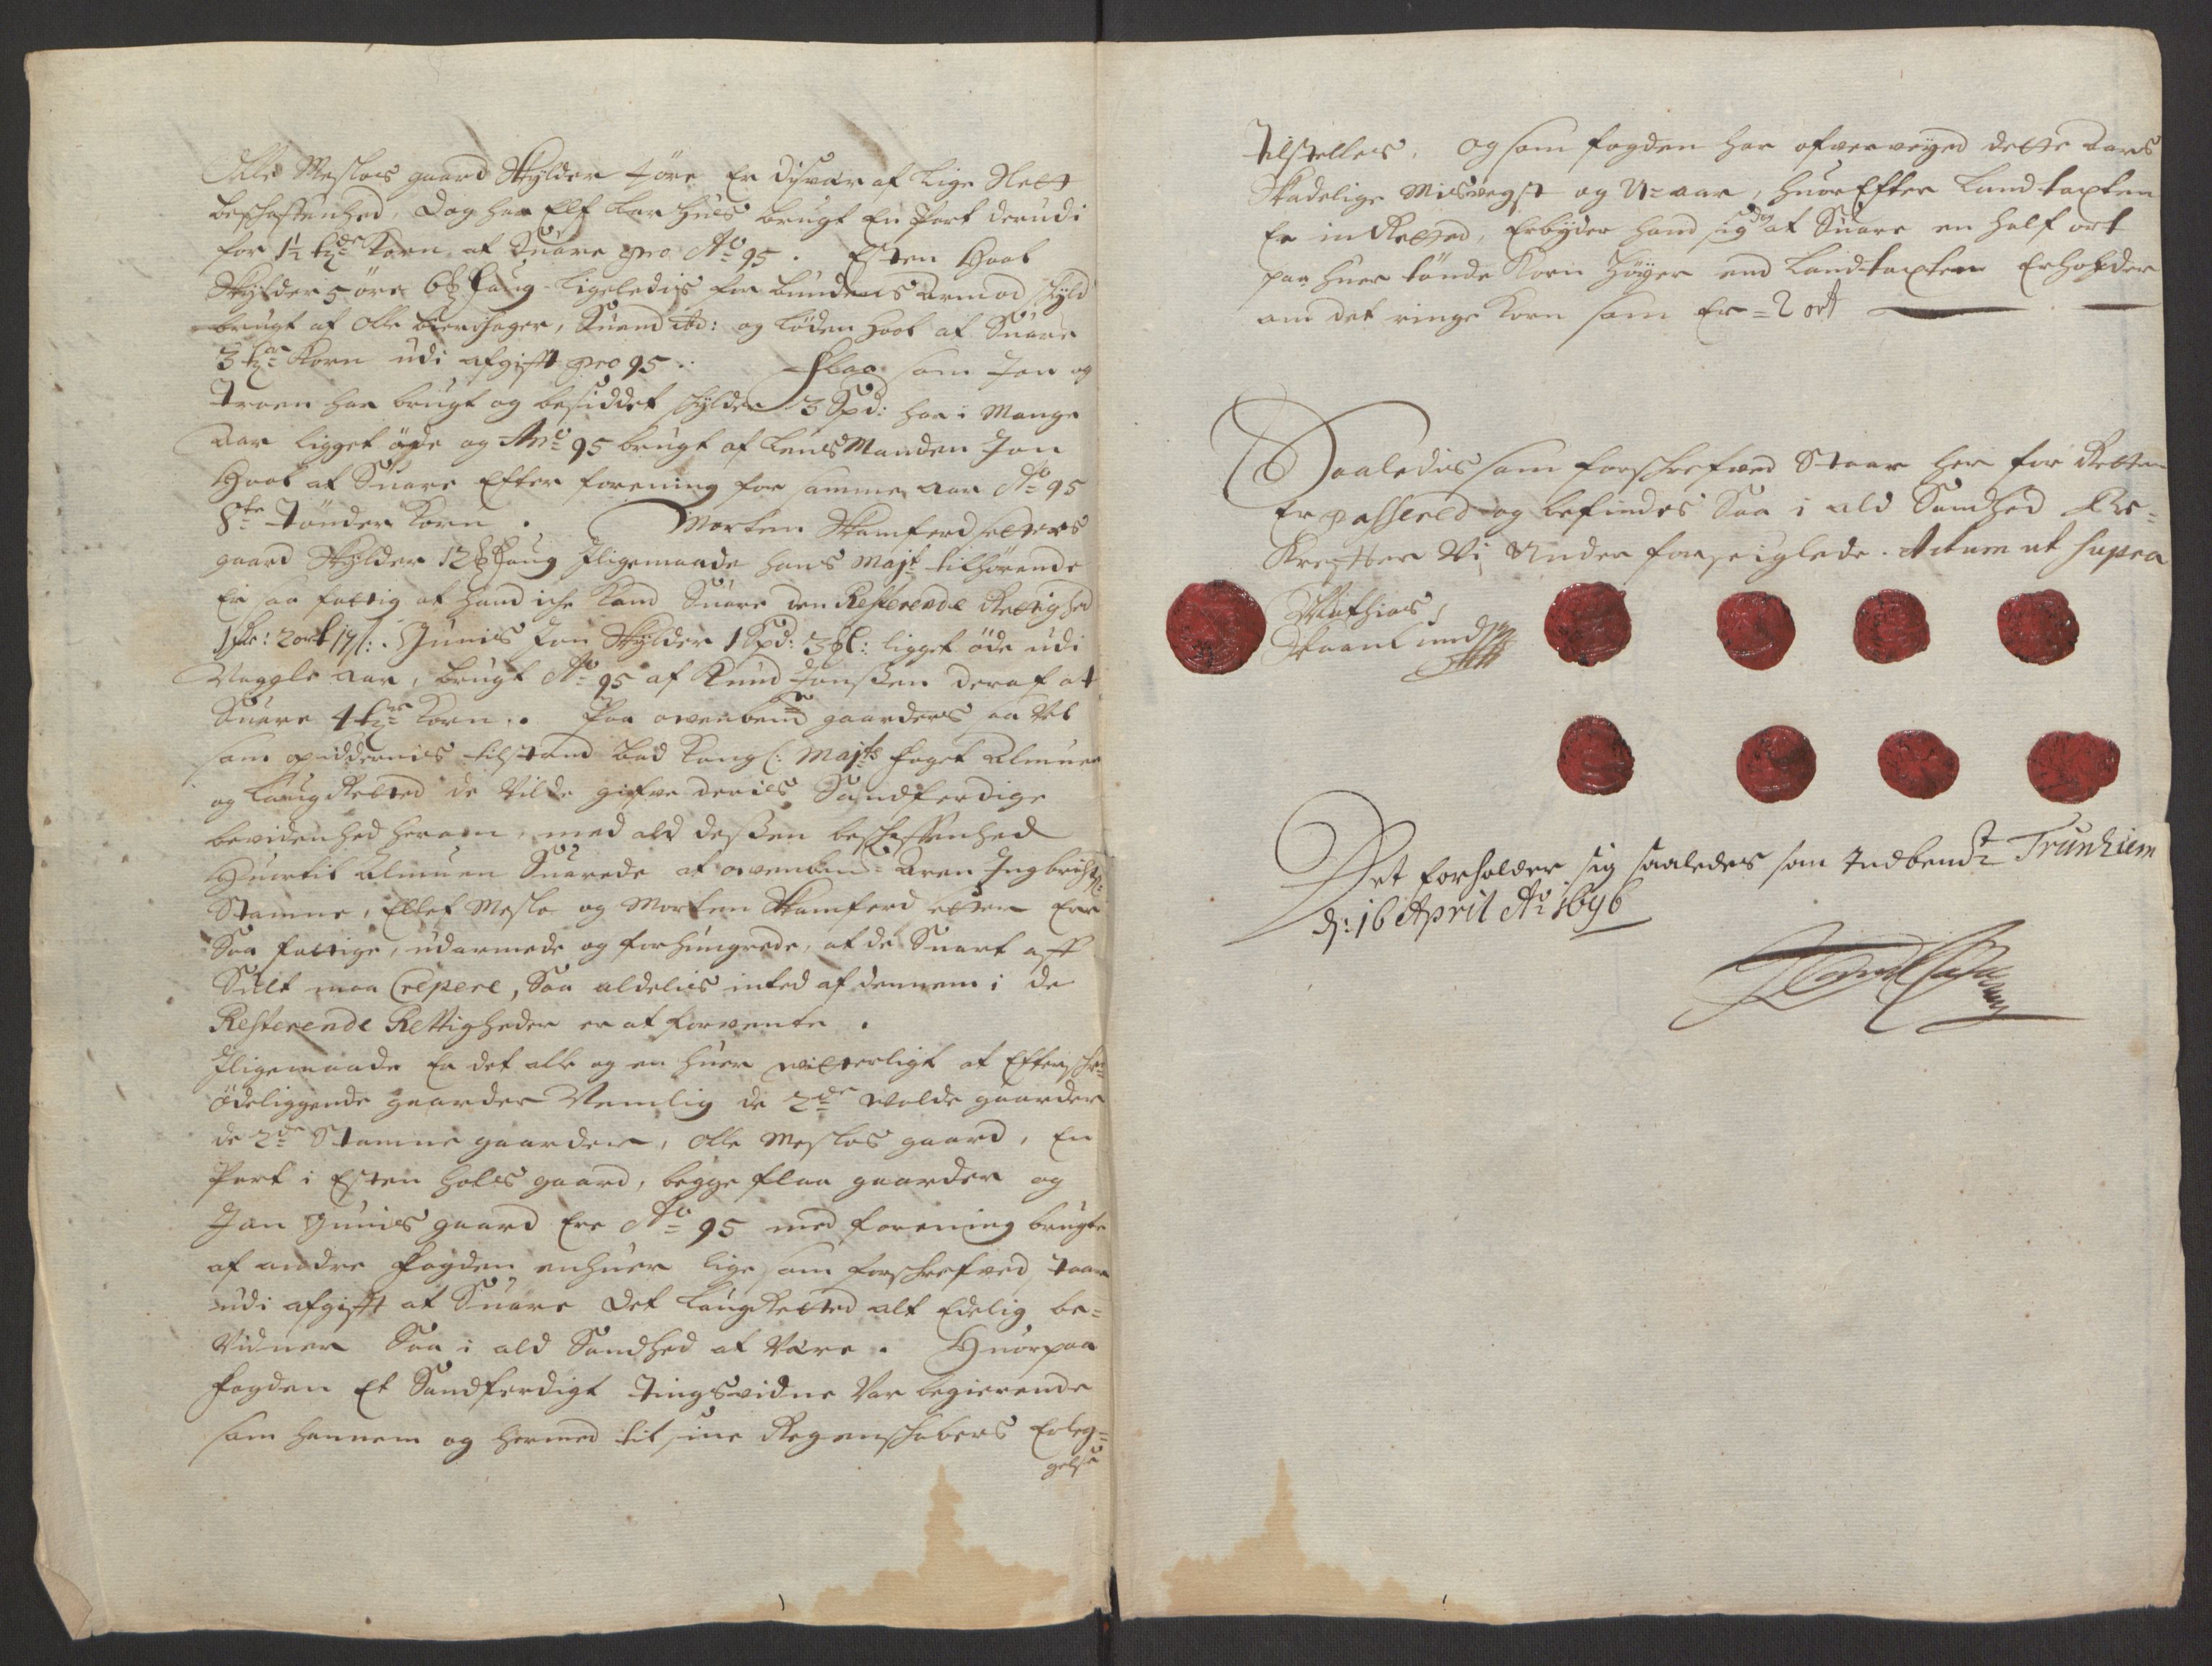 Olle Mesloes gaard Skylder 1 öre Er disvær af lige Slett
beschaffenhed, Dog har Elf Aarhues brugt En Part derudi
for 1½ tde Korn at Suare pro Ao 95. Esten Hoel
Skylder 5 öre 6 laug ligeledis for bundens Armod schyld
brugt af Olle og löden Hoel at Suare
3 tdr Korn udi afgifft pro 95. Flaa som Jon og
Troen har brugt og besiddet schylder 3 Spd: har i Mange
Aar ligget öde og Ano 95 brugt af LensManden Jon
Hoel at Suare Efter forening for samme Aar Ao 95
8te Tönder Korn. Morten Skamferdsetters
gaard Skylder 12 laug Jligemaade hans Majt tilhörende
Er saa fattig at hand iche Kand Suare den Resterende Rettighed
1 : 2 ort 19 s:. Gunnes Jon Skylder 1 Spd: 3 : ligget öde udi
Nogle Aar, brugt Ao 95 af Knud Jonssen deraf at
Suare 4 tdr Korn. Paa ovenbemte gaarders aa Vel
som opsiddernis tilstand bad Kongl: Majts foget Almuen
og LaugRetted de Vilde gifve deris Sandferdige
bevidenhed herom, med ald dessen beschaffenhed
Huortil Almuen Suarede at ovenbem: Aren Ingbrichtz:
Stamne, Ellef Meslo og Morten Skamferdsetter Ere
Saa fattige, udarmede og forhungrede, at de Snart aff
Sult maa Crepere, Saa aldelis inted af dennem i de
Resterende Rettigheder er at forvente.
Jligemaade Er det alle og en huer vitterligt at Efterschr:
ödeliggende gaarder Nemlig de 2de Volde gaarder
de 2de Stamne gaarder, Olle Mesloes gaard, En
Part i Esten Hoels gaard, begge flaa gaarder og
Jon Gunnes gaard Ere Ao 95 med forening brugte
af andre Fogden enhuer lige som forschrefved staar
udi afgifft at Suare Det LaugRetted alt Edelig be=
Vidner Saa i ald Sandhed at Være. Huorpaa
Fogden Et Sandferdigt Tingsvidne Var begierende
som hannem og hermed til sine Regenschabers Erleg=
gelse
tilstelles. Og som fogden har ofverveyed dette Aars
Skadelige Misvegst og U=aar, huorEfter Landtaxten
Er indRetted, Erbyder hand sig at Suare en half ort
paa huer tönde Korn höyer end Landtaxten Erholder
om det ringe Korn som Er = 2 ort
Saaledis som forschrefved Staar her for Retten
Er passered og befindes Saa i ald Sandhed Be=
Krefter Vi Under forseiglede. Actum ut supra
Mathias
Det forholder sig saaledes som Indbemt Trunhiem
d: 16 April Ao 1696